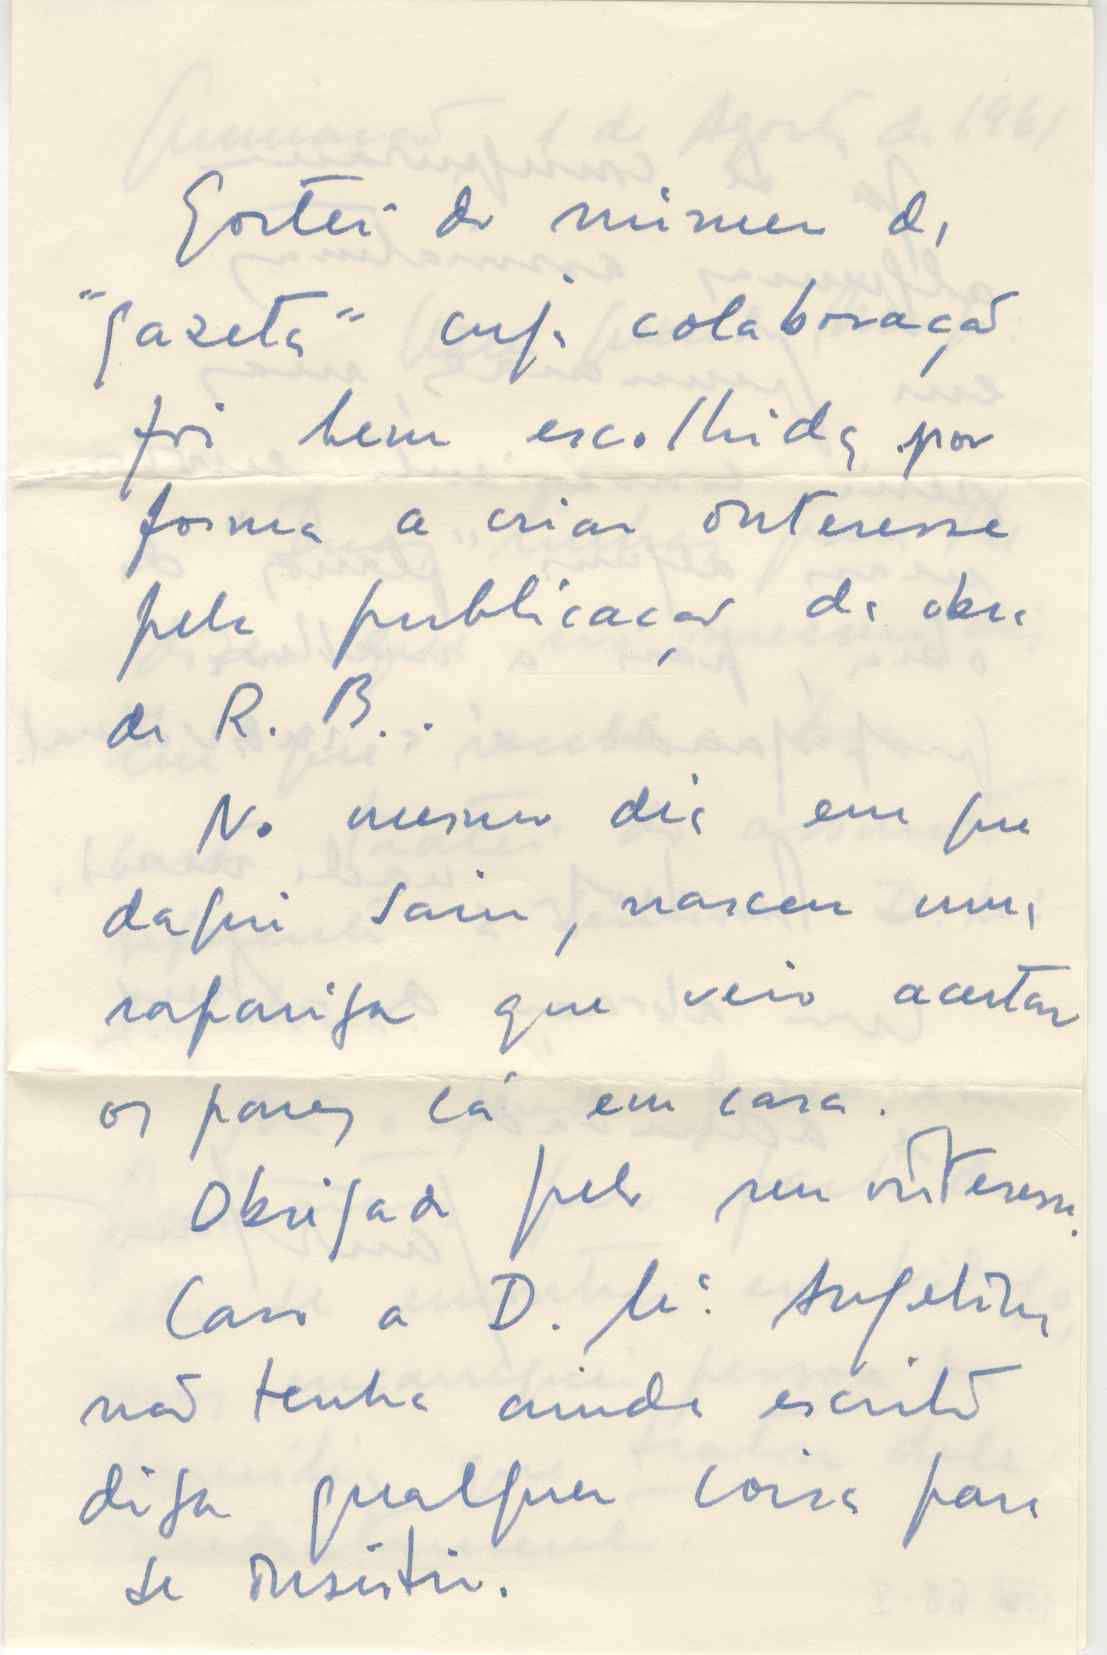 Gostei do número da
"Gazeta" cuja colaboração
foi bem escolhida por
forma a criar interesse
pela publicação da obra
de R. B..
No mesmo dia em que
daqui saiu, nasceu uma
rapariga que veio acertar
os pares cá em casa.
Obrigado pelo seu interesse.
Caso a D. M.ª Angelina
não tenha ainda escrito
diga qualquer coisa para
se insistir.